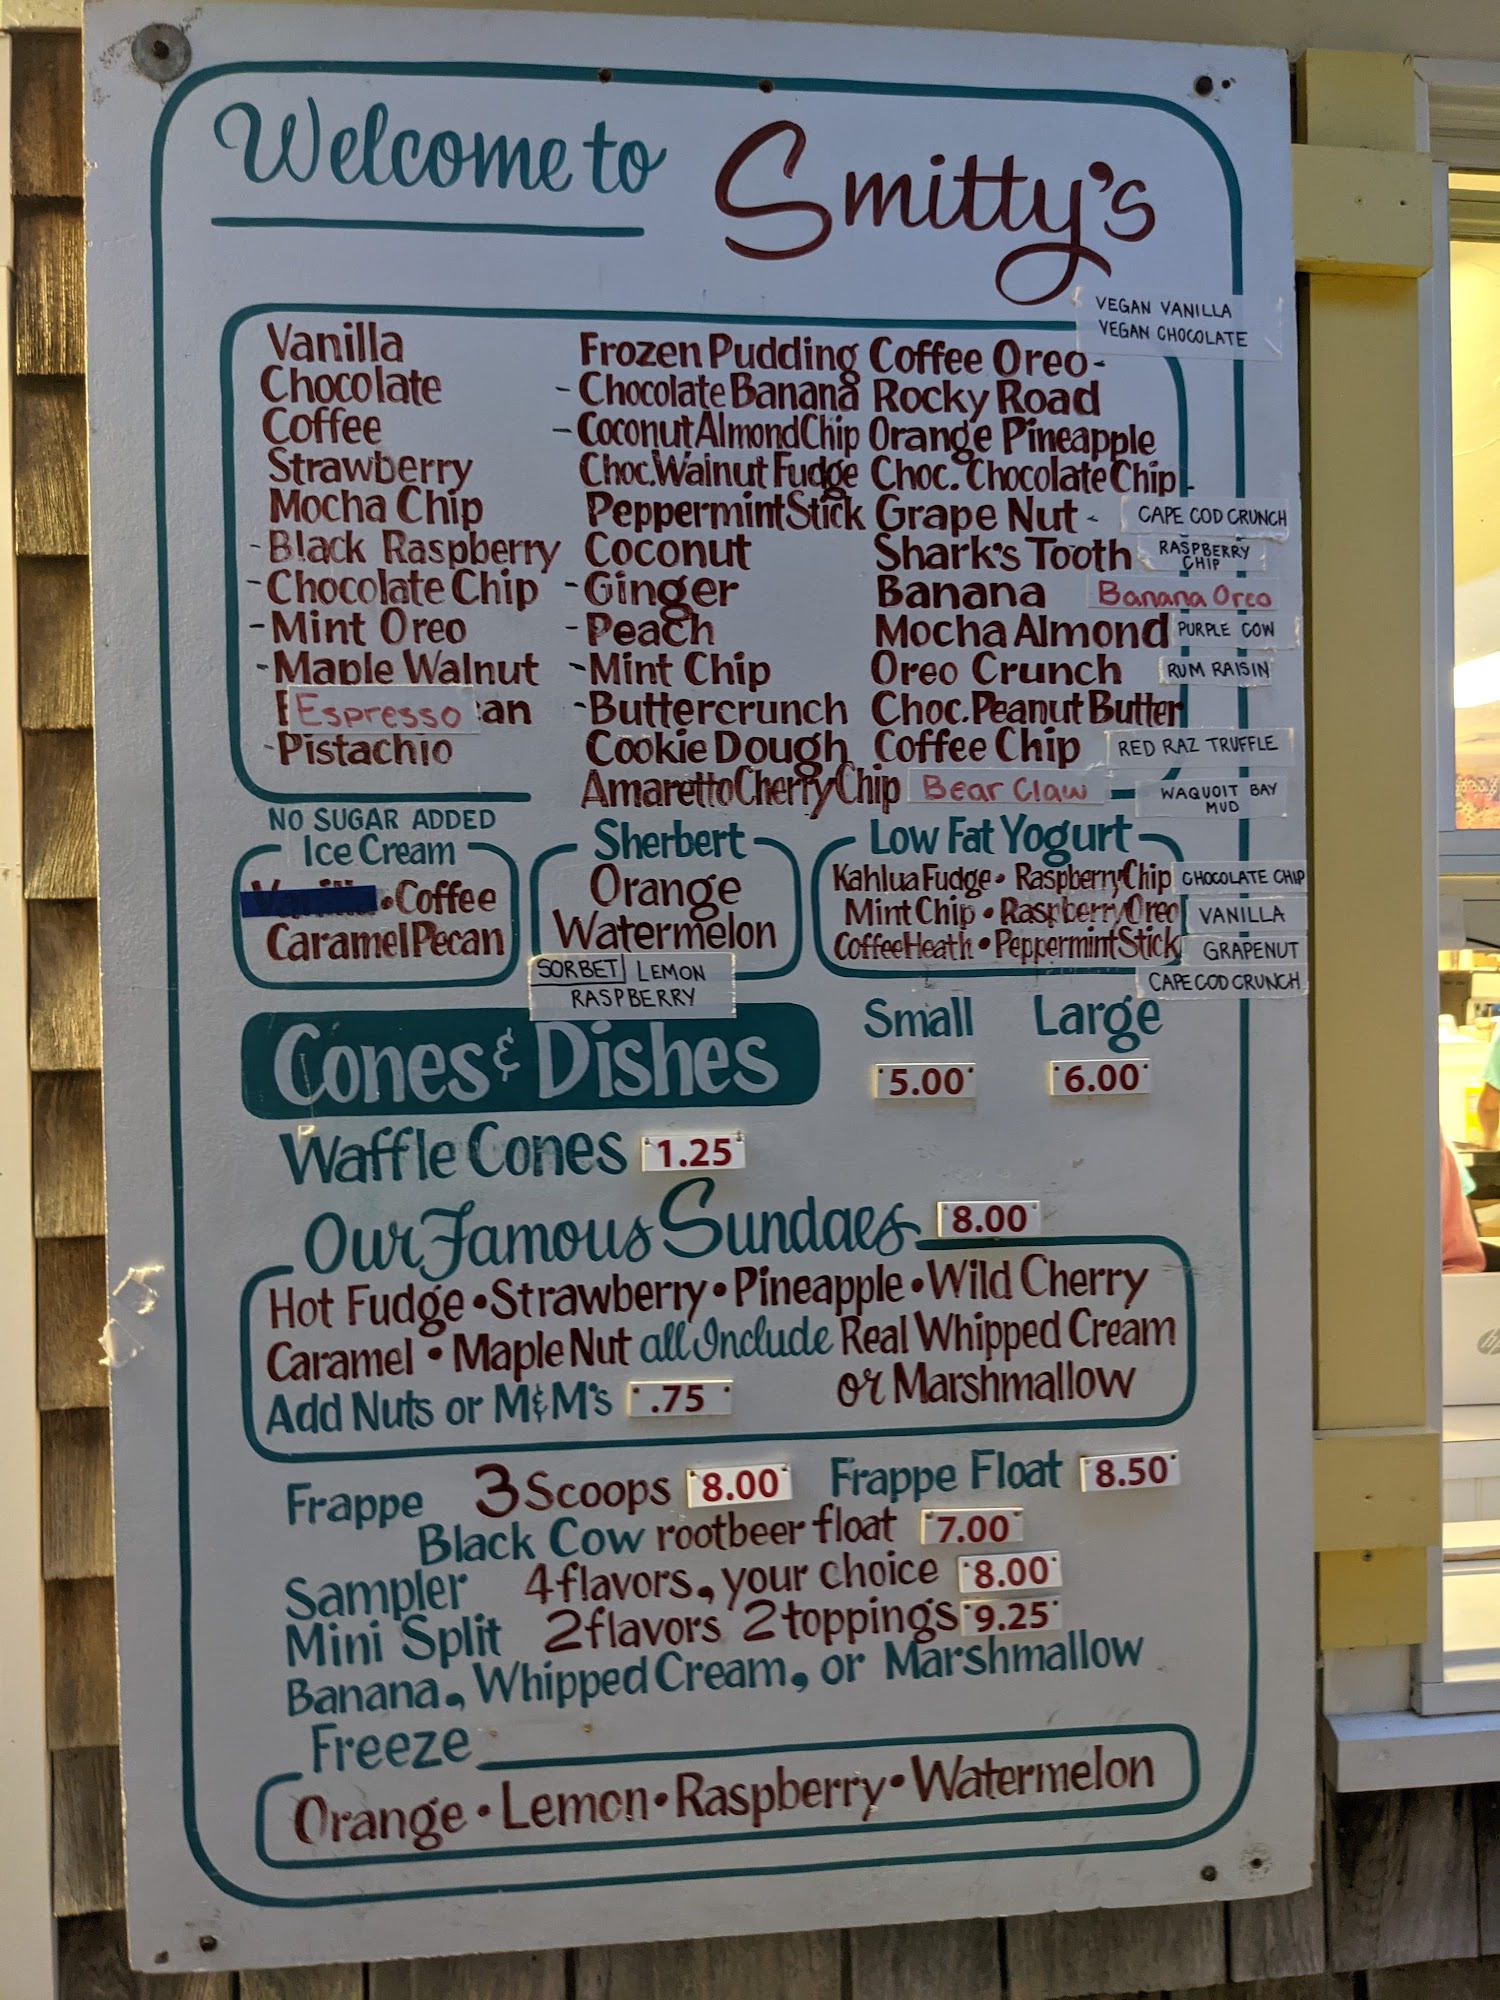 Welcome to Smitty's
VEGAN VANILLA
VEGAN CHOCOLATE
Vanilla
Chocolate
Coffee
Strawberry
Mocha Chip
- Black Raspberry
- Chocolate Chip
- Mint Oreo
- Maple Walnut
Espresso
- Pistachio
Frozen Pudding
- Chocolate Banana
- Coconut Almond Chip
Choc. Walnut Fudge
Peppermint Stick
Coconut
- Ginger
- Peach
- Mint Chip
- Buttercrunch
Cookie Dough
Amaretto Cherry Chip
Coffee Oreo -
Rocky Road
Orange Pineapple
Choc. Chocolate Chip -
Grape Nut -
Shark's Tooth
Banana
Mocha Almond
Oreo Crunch
Choc. Peanut Butter
Coffee Chip
Bear Claw
CAPE COD CRUNCH
RASPBERRY
CHIP
Banana Oreo
PURPLE COW
RUM RAISIN
RED RAZ TRUFFLE
WAQUOIT BAY
MUD
NO SUGAR ADDED
Ice Cream
• Coffee
Caramel Pecan
Sherbert
Orange
Watermelon
SORBET LEMON
RASPBERRY
Low Fat Yogurt
Kahlua Fudge • Raspberry Chip CHOCOLATE CHIP
Mint Chip • Raspberry Oreo VANILLA
Coffee Heath • Peppermint Stick GRAPENUT
CAPE COD CRUNCH
Small Large
Cones & Dishes 5.00 6.00
Waffle Cones 1.25
Our Famous Sundaes 8.00
Hot Fudge • Strawberry • Pineapple • Wild Cherry
Caramel • Maple Nut all Include Real Whipped Cream
Add Nuts or M&M's .75 or Marshmallow
Frappe 3 Scoops 8.00 Frappe Float 8.50
Black Cow rootbeer float 7.00
Sampler 4 flavors, your choice 8.00
Mini Split 2 flavors 2 toppings 9.25
Banana, Whipped Cream, or Marshmallow
Freeze
Orange • Lemon • Raspberry • Watermelon